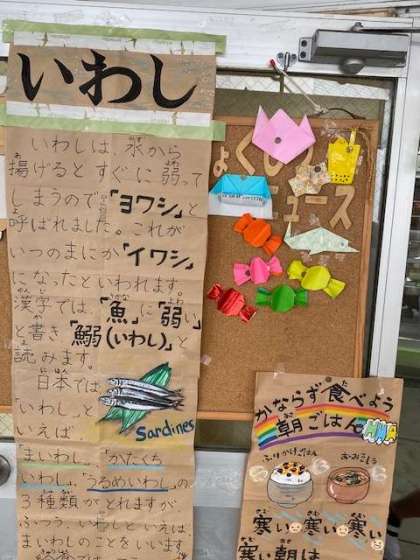 いわし
いわしは、水から
揚げるとすぐに弱って
しまうので「ヨワシ」と
呼ばれました。これが
いつのまにか「イワシ」
になったといわれます。
漢字では「魚」に「弱い」
と書き「鰯(いわし)」と
読みます。
日本では
「いわし」と
いえば、
Sardines
「まいわし」「かたくち
いわし」「うるめいわし」の
3種類がとれますが
ふつう、いわしといえば
まいわしのことをいいます。
ょくひん
ュース
かならず食べよう
朝ごはん
ふりかけごはん
おみそしる
寒い寒い寒い
寒い朝は